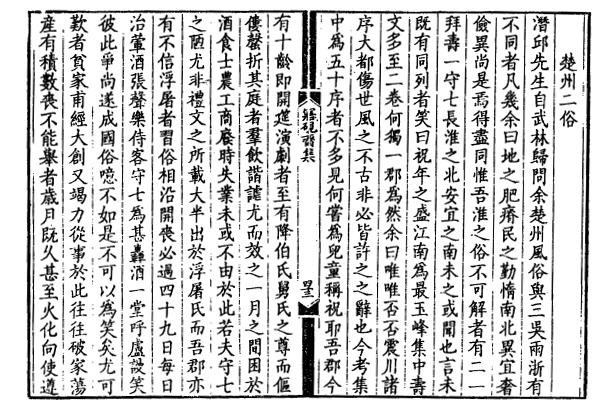 楚州二俗
潛邱先生自武林歸問余楚州風俗與三吳兩浙有
不同者凡幾余曰地之肥瘠民之勤惰南北異宜奢
儉異尚是焉得盡同惟吾淮之俗不可解者有二一
拜壽一守七長淮之北安宜之南未之或聞也言未
既有同列者笑曰祝年之盛江南為最玉峰集中壽
文多至二卷何獨一郡為然余曰唯唯否否震川諸
序大都傷世風之不古非必皆許之之辭也今考集
中為五十序者不多見何嘗為兒童稱祝耶吾郡今
硯齋集
有十齡即開筵演劇者至有降伯氏舅氏之尊而傴
僂罄折其庭者羣飲諧謔尤而效之一月之間困於
酒食士農工商廢時失業未或不由於此若夫守七
之陋尤非禮文之所載大半出於浮屠氏而吾郡亦
有不信浮屠者習俗相沿開喪必過四十九日每日
治葷酒張聲樂侍客守七為甚轟酒一堂呼盧諼笑
彼此爭尚遂成國俗噫不如是不可以為笑矣尤可
歎者貧家甫經大創又竭力從事於此往往破家蕩
產有積數喪不能舉者歲月既久甚至火化向使遵